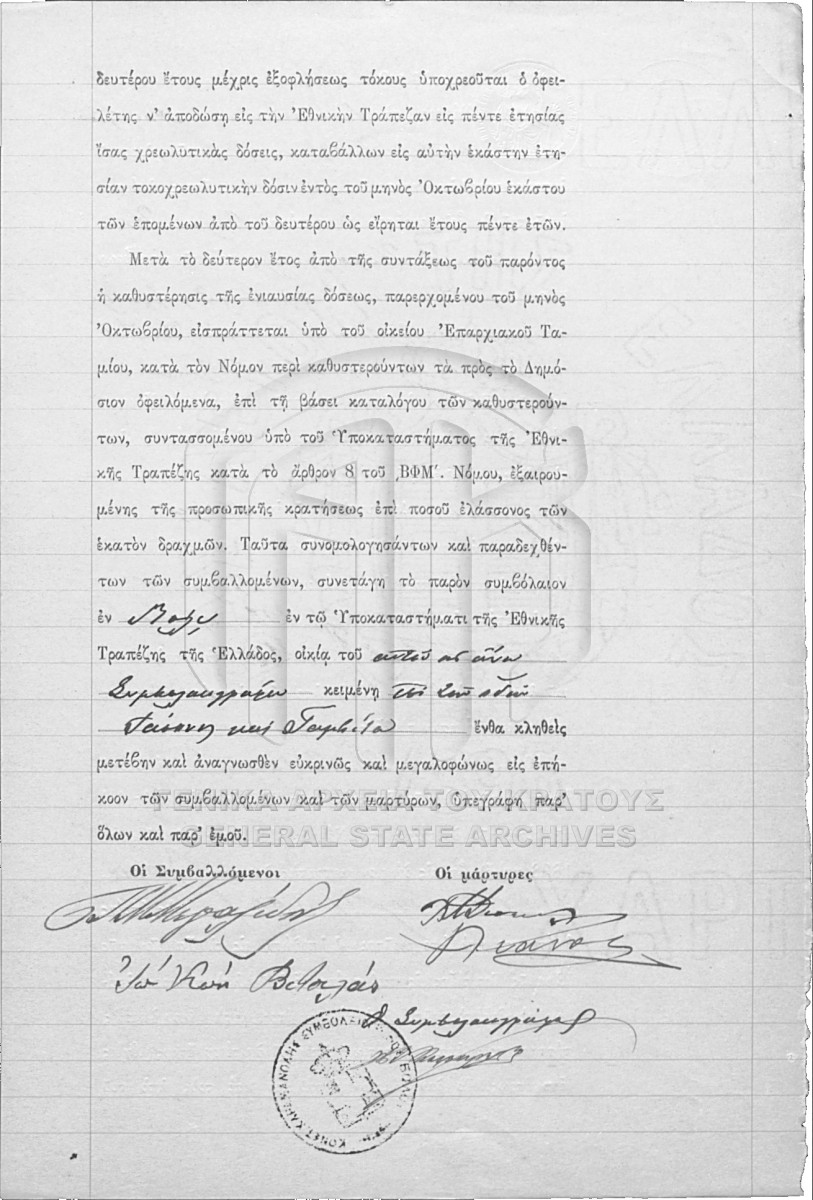 δευτέρου ἔτους μέχρις ἐξοφλήσεως τόκους ὑποχρεοῦται ὁ ὀφει-
λέτης ν' ἀποδώσῃ εἰς τὴν Ἐθνικὴν Τράπεζαν εἰς πέντε ἐτησίας
ἴσας χρεωλυτικὰς δόσεις, καταβάλλων εἰς αὐτὴν ἑκάστην ἐτη-
σίαν τοκοχρεωλυτικὴν δόσιν ἐντὸς τοῦ μηνὸς Ὀκτωβρίου ἑκάστου
τῶν ἑπομένων ἀπὸ τοῦ δευτέρου ὡς εἴρηται ἔτους πέντε ἐτῶν.
Μετὰ τὸ δεύτερον ἔτος ἀπὸ τῆς συντάξεως τοῦ παρόντος
ἡ καθυστέρησις τῆς ἐνιαυσίας δόσεως, παρερχομένου τοῦ μηνὸς
Ὀκτωβρίου, εἰσπράττεται ὑπὸ τοῦ οἰκείου Ἐπαρχιακοῦ Τα-
μίου, κατὰ τὸν Νόμον περὶ καθυστερούντων τὰ πρὸς τὸ Δημό-
σιον ὀφειλόμενα, ἐπὶ τῇ βάσει καταλόγου τῶν καθυστερούν-
των, συντασσομένου ὑπὸ τοῦ Ὑποκαταστήματος τῆς Ἐθνι-
κῆς Τραπέζης κατὰ τὸ ἄρθρον 8 τοῦ ͵ΒΦΜʹ. Νόμου, ἐξαιρου-
μένης τῆς προσωπικῆς κρατήσεως ἐπὶ ποσοῦ ἐλάσσονος τῶν
ἑκατὸν δραχμῶν. Ταῦτα συνομολογησάντων καὶ παραδεχθέν-
των τῶν συμβαλλομένων, συνετάγη τὸ παρὸν συμβόλαιον
ἐν Βόλῳ ἐν τῷ Ὑποκαταστήματι τῆς Ἐθνικῆς
Τραπέζης τῆς Ἑλλάδος, οἰκίᾳ τοῦ
κειμένῃ
ἔνθα κληθεὶς
μετέβην καὶ ἀναγνωσθὲν εὐκρινῶς καὶ μεγαλοφώνως εἰς ἐπή-
κοον τῶν συμβαλλομένων καὶ τῶν μαρτύρων, ὑπεγράφη παρ'
ὅλων καὶ παρ' ἐμοῦ.
ΓΕΝΙΚΑ ΑΡΧΕΙΑ ΤΟΥ ΚΡΑΤΟΥΣ
GENERAL STATE ARCHIVES
Οἱ Συμβαλλόμενοι Οἱ μάρτυρες
Ὁ Συμβολαιογράφος